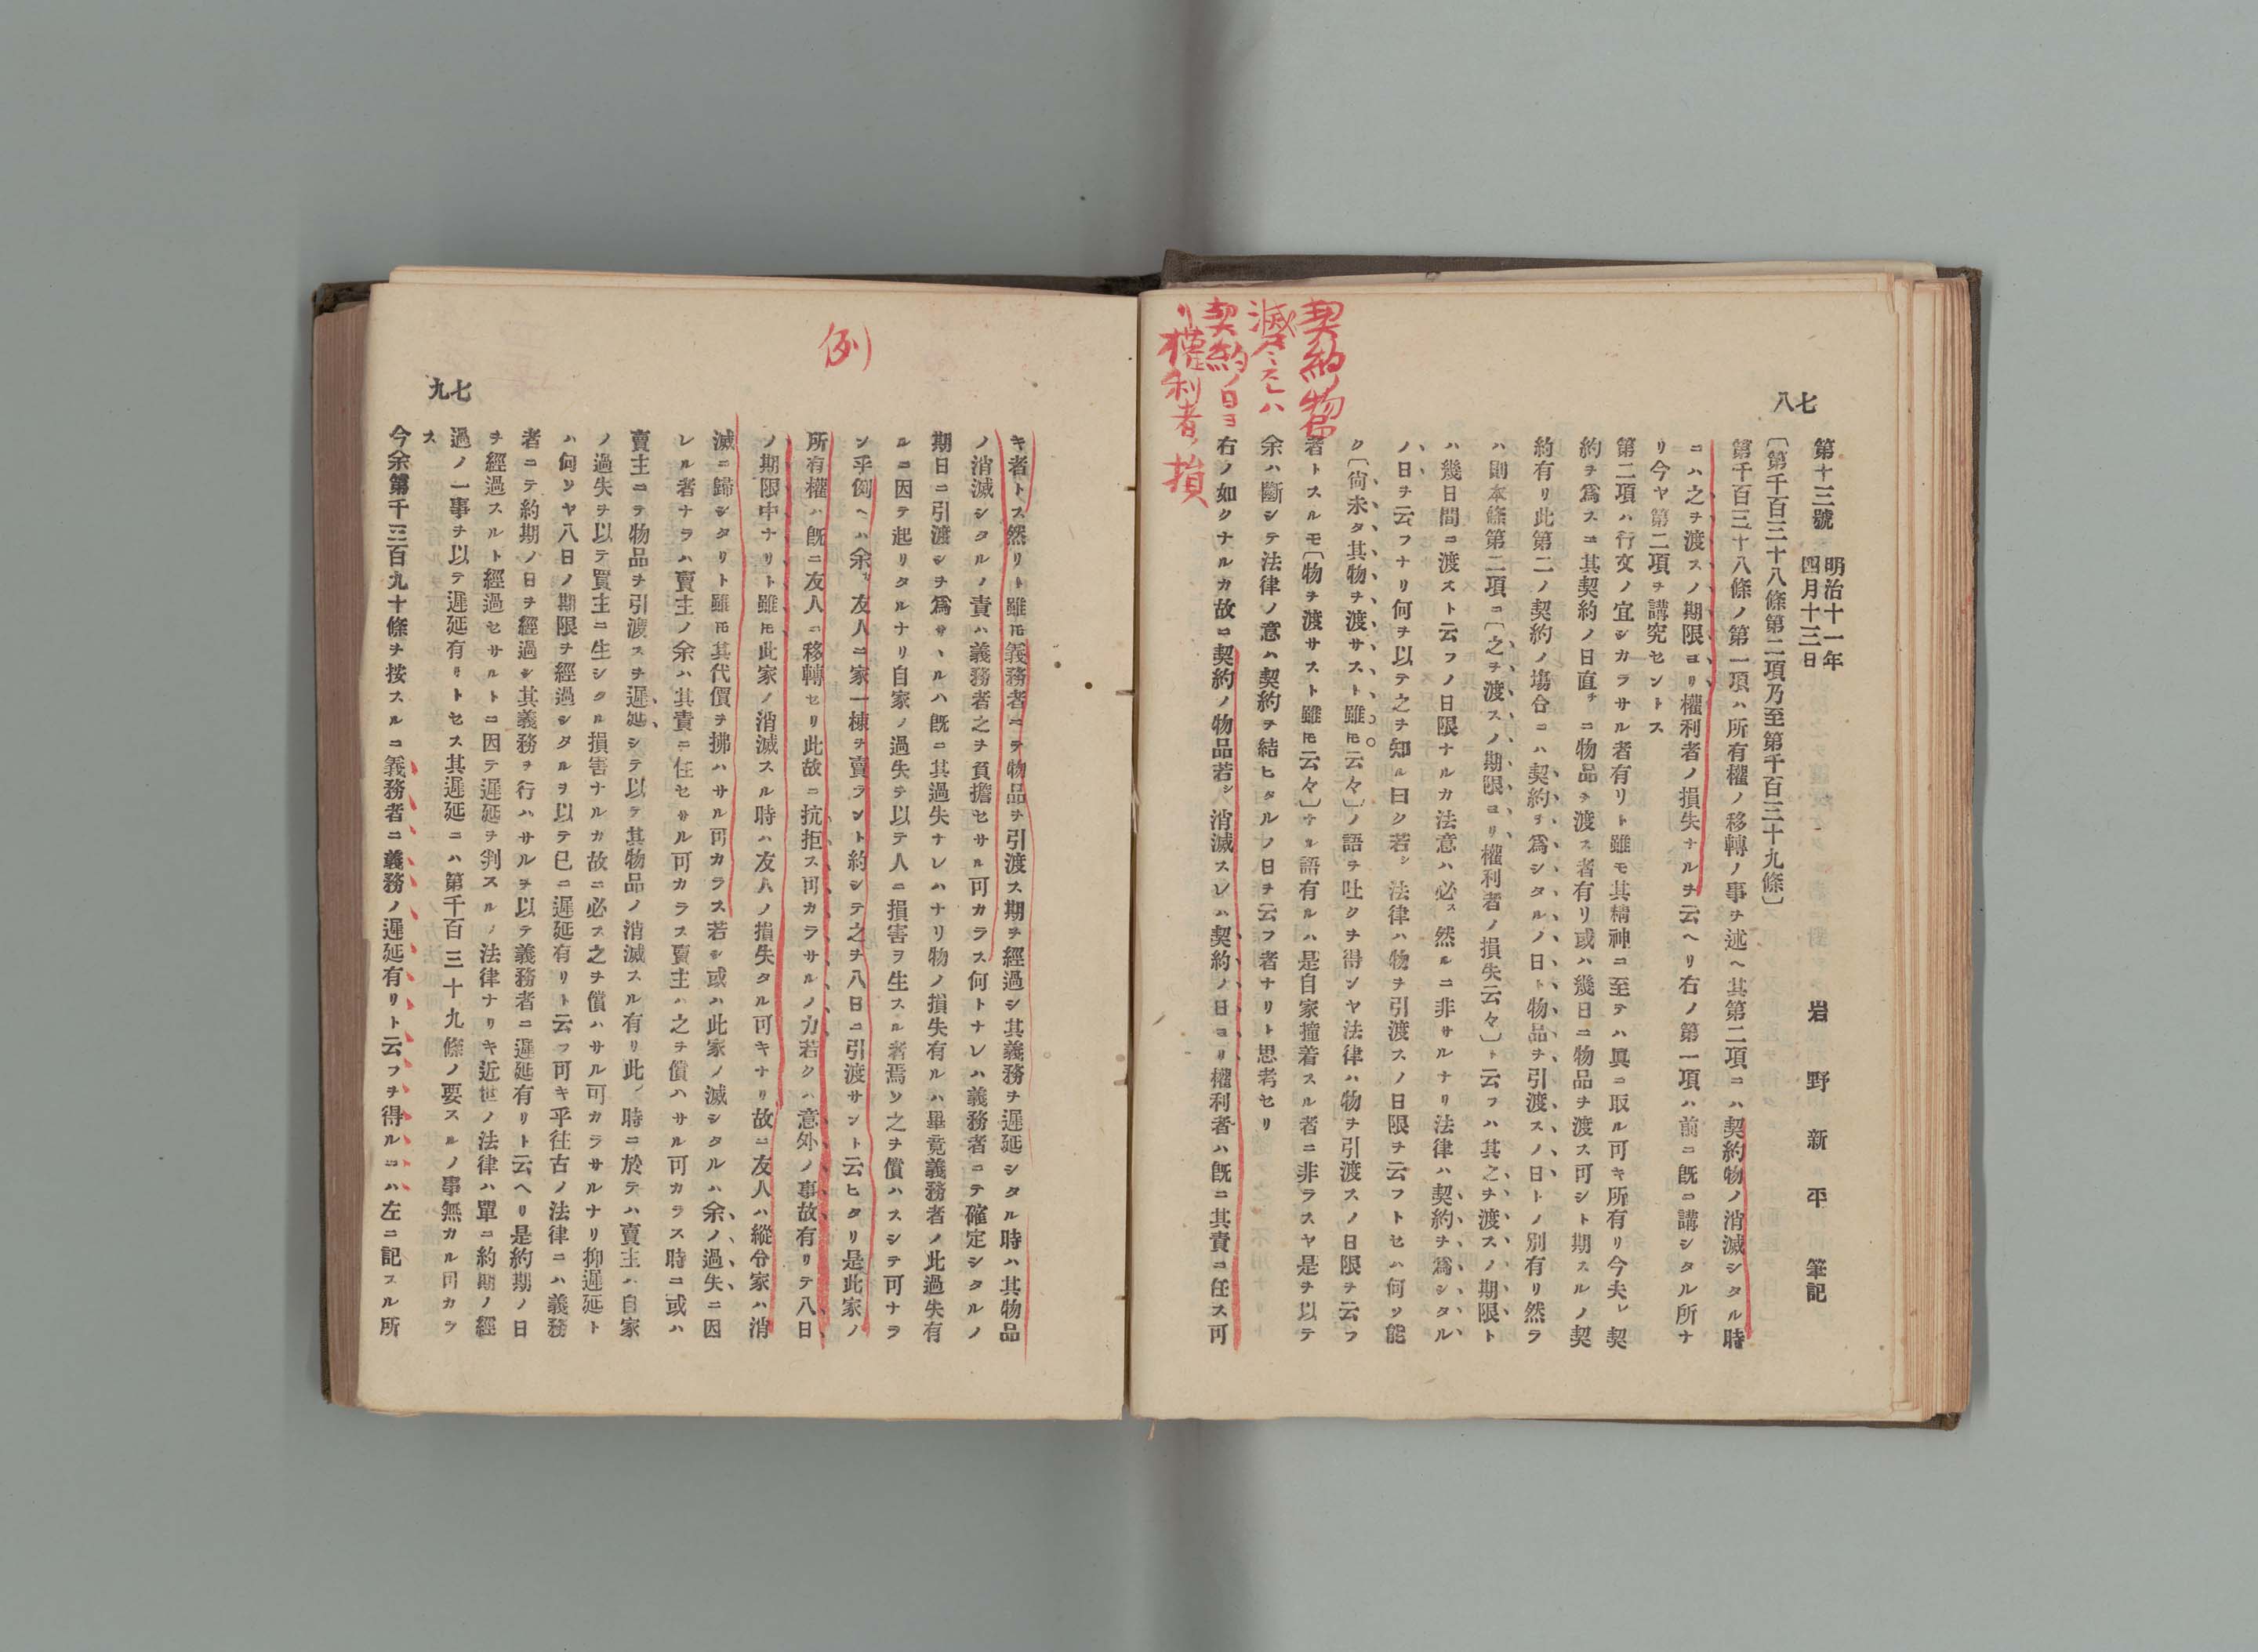 七八
第十三號 明治十一年四月十三日 岩野新平 筆記
〔第千百三十八條第二項乃至第千百三十九條〕
第千百三十八條ノ第一項ハ所有權ノ移轉ノ事ヲ述ヘ其第二項ニハ契約物ノ消滅シタル時
ニハ之ヲ渡スノ期限ヨリ權利者ノ損失ナルヲ云ヘリ右ノ第一項ハ前ニ既ニ講シタル所ナ
リ今ヤ第二項ヲ講究セントス
第二項ハ行文ノ宜シカラサル者有リト雖モ其精神ニ至テハ眞ニ取ル可キ所有リ今夫レ契
約ヲ爲スニ其契約ノ日直チニ物品ヲ渡ス者有リ或ハ幾日ニ物品ヲ渡ス可シト期スルノ契
約有リ此第二ノ契約ノ塲合ニハ契約ヲ爲シタルノ日ト物品ヲ引渡スノ日トノ別有リ然ラ
ハ則本條第二項ニ〔之ヲ渡スノ期限ヨリ權利者ノ損失云々〕ト云フハ其之ヲ渡スノ期限ト
ハ幾日間ニ渡スト云フノ日限ナルカ法意ハ必ス然ルニ非サルナリ法律ハ契約ヲ爲シタル
ノ日ヲ云フナリ何ヲ以テ之ヲ知ル曰ク若シ法律ハ物ヲ引渡スノ日限ヲ云フトセハ何ソ能
ク〔尙未タ其物ヲ渡サスト雖𪜈云々〕ノ語ヲ吐クヲ得ンヤ法律ハ物ヲ引渡スノ日限ヲ云フ
者トスルモ〔物ヲ渡サスト雖𪜈云々〕ナル語有ルハ是自家撞着スル者ニ非ラスヤ是ヲ以テ
余ハ斷シテ法律ノ意ハ契約ヲ結ヒタルノ日ヲ云フ者ナリト思考セリ
右ノ如クナルカ故ニ契約ノ物品若シ消滅スレハ契約ノ日ヨリ權利者ハ既ニ其責ニ任ス可
契約ノ物品
契約ノ日ヨ
リ權利者ノ損
七九
例
キ者トス然リト雖𪜈義務者ニテ物品ヲ引渡ス期ヲ經過シ其義務ヲ遲延シタル時ハ其物品
ノ消滅シタルノ責ハ義務者之ヲ負擔セサル可カラス何トナレハ義務者ニテ確定シタルノ
期日ニ引渡シヲ爲サヽルハ既ニ其過失ナレハナリ物ノ損失有ルハ畢竟義務者ノ此過失有
ルニ因テ起リタルナリ自家ノ過失ヲ以テ人ニ損害ヲ生スル者焉ソ之ヲ償ハスシテ可ナラ
ン乎例ヘハ余ノ友人ニ家一棟ヲ賣ラント約シテ之ヲ八日ニ引渡サント云ヒタリ是此家ノ
所有權ハ既ニ友人ニ移轉セリ此故ニ抗拒ス可カラサルノ力若クハ意外ノ事故有リテ八日
ノ期限中ナリト雖𪜈此家ノ消滅スル時ハ友人ノ損失タル可キナリ故ニ友人ハ縱令家ハ消
滅ニ歸シタリト雖𪜈其代價ヲ拂ハサル可カラス若シ或ハ此家ノ滅シタルハ余ノ過失ニ因
レル者ナラハ賣主ノ余ハ其責ニ任セサル可カラス賣主ハ之ヲ償ハサル可カラス時ニ或ハ
賣主ニテ物品ヲ引渡スヲ遲延シテ以テ其物品ノ消滅スル有リ此ノ時ニ於テハ賣主ハ自家
ノ過失ヲ以テ買主ニ生シタル損害ナルカ故ニ必ス之ヲ償ハサル可カラサルナリ抑遲延ト
ハ何ソヤ八日ノ期限ヲ經過シタルヲ以テ已ニ遲延有リト云フ可キ乎往古ノ法律ニハ義務
者ニテ約期ノ日ヲ經過シ其義務ヲ行ハサルヲ以テ義務者ニ遲延有リト云ヘリ是約期ノ日
ヲ經過スルト經過セサルトニ因テ遲延ヲ判スルノ法律ナリキ近世ノ法律ハ單ニ約期ノ經
過ノ一事ヲ以テ遲延有リトセス其遲延ニハ第千百三十九條ノ要スルノ事無カル可カラ
ス
今余第千三百九十條ヲ按スルニ義務者ニ義務ノ遲延有リト云フヲ得ルニハ左ニ記スル所